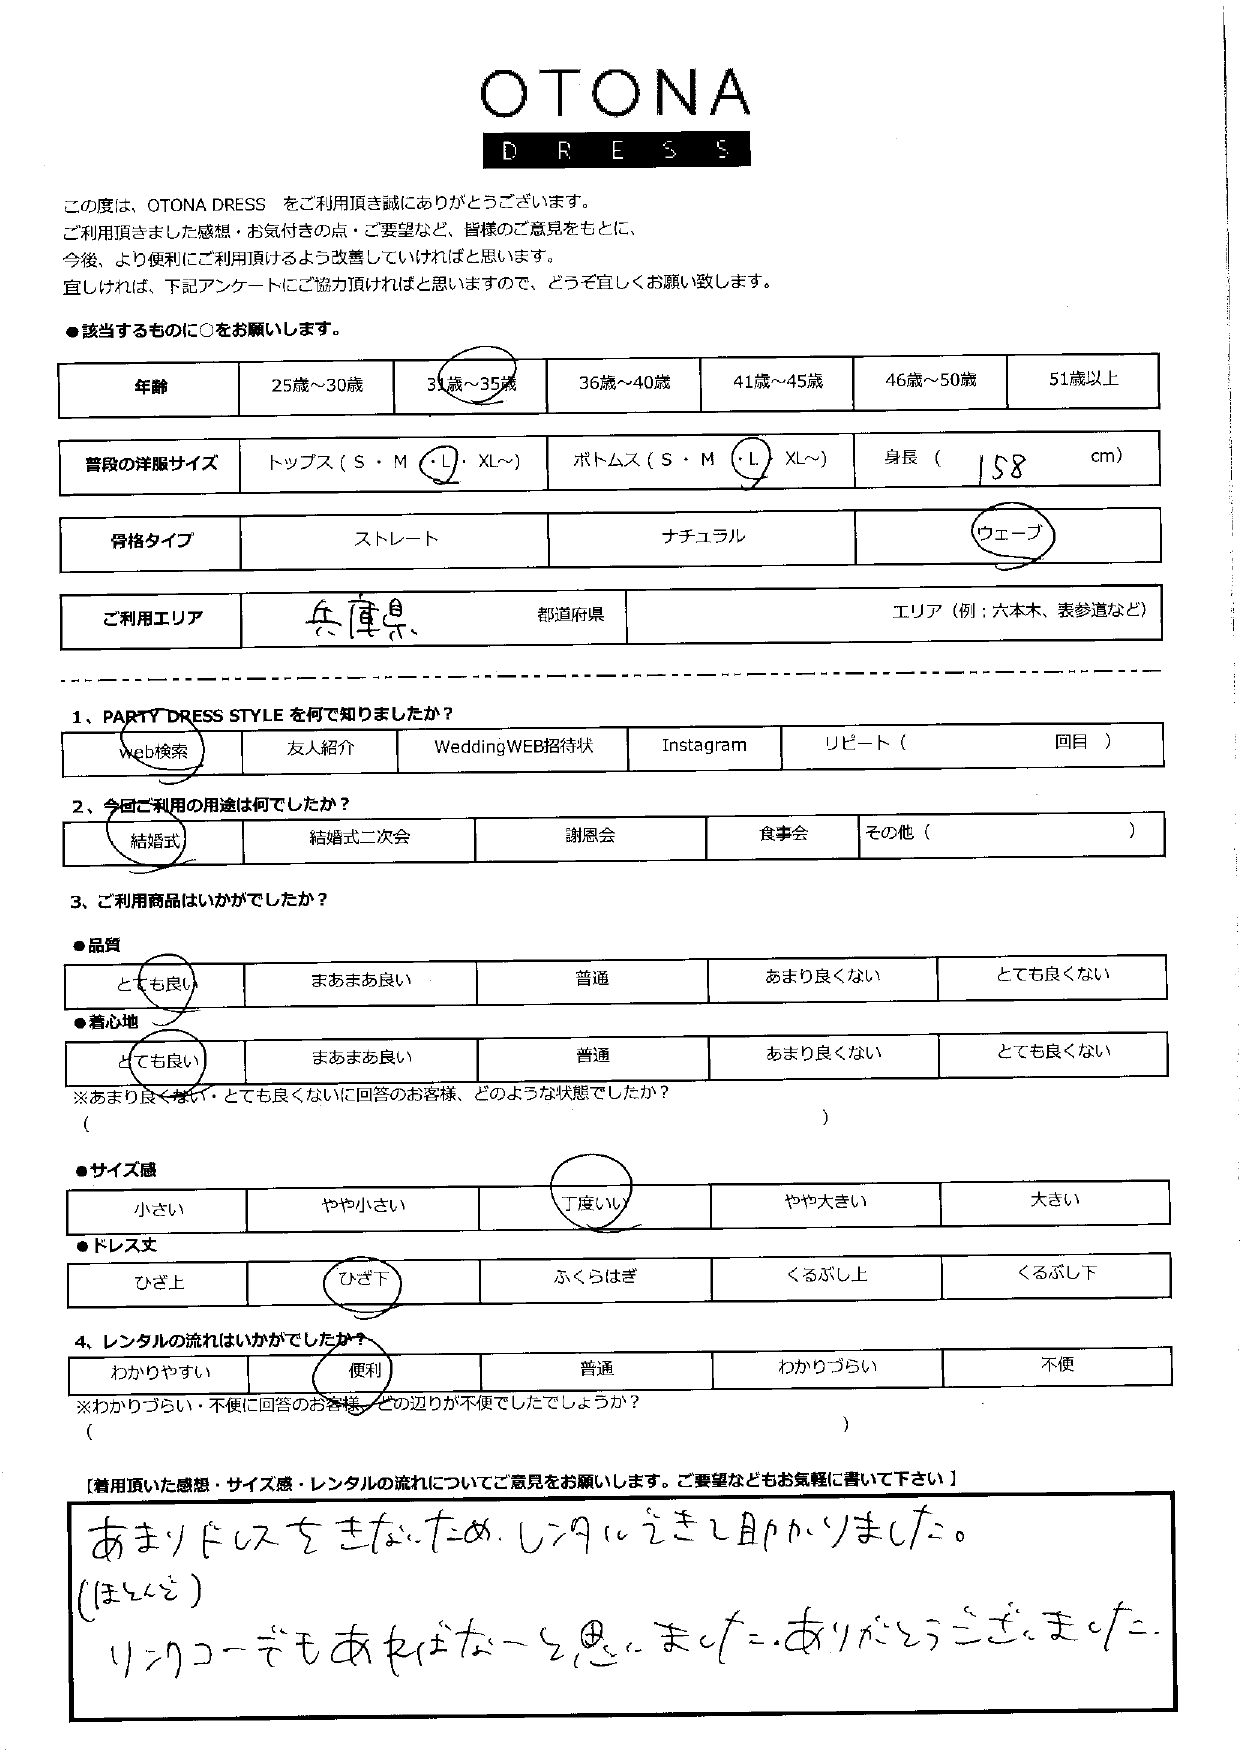 OTONA
DRESS
この度は、OTONA DRESS をご利用頂き誠にありがとうございます。
ご利用頂きました感想・お気付きの点・ご要望など、皆様のご意見をもとに、
今後、より便利にご利用頂けるよう改善していければと思います。
宜しければ、下記アンケートにご協力頂ければと思いますので、どうぞ宜しくお願い致します。
●該当するものに○をお願いします。
年齢 25歳～30歳 31歳～35歳 36歳～40歳 41歳～45歳 46歳～50歳 51歳以上
普段の洋服サイズ トップス ( S ・ M ・L ・ XL～) ボトムス ( S ・ M ・L XL～) 身長 ( 158 cm)
骨格タイプ ストレート ナチュラル ウェーブ
ご利用エリア 兵庫県 都道府県 エリア（例；六本木、表参道など）
1、PARTY DRESS STYLE を何で知りましたか？
web検索 友人紹介 WeddingWEB招待状 Instagram リピート（ 回目 ）
2、今回ご利用の用途は何でしたか？
結婚式 結婚式二次会 謝恩会 食事会 その他（ ）
3、ご利用商品はいかがでしたか？
●品質
とても良い まあまあ良い 普通 あまり良くない とても良くない
●着心地
とても良い まあまあ良い 普通 あまり良くない とても良くない
※あまり良くない・とても良くないに回答のお客様、どのような状態でしたか？
( )
●サイズ感
小さい やや小さい 丁度いい やや大きい 大きい
●ドレス丈
ひざ上 ひざ下 ふくらはぎ くるぶし上 くるぶし下
4、レンタルの流れはいかがでしたか？
わかりやすい 便利 普通 わかりづらい 不便
※わかりづらい・不便に回答のお客様、どの辺りが不便でしたでしょうか？
( )
【着用頂いた感想・サイズ感・レンタルの流れについてご意見をお願いします。ご要望などもお気軽に書いて下さい 】
あまりドレスをきないため、レンタルできて助かりました。
(ほとんど)
リンクコーデもあればなーと思いました。ありがとうございました。